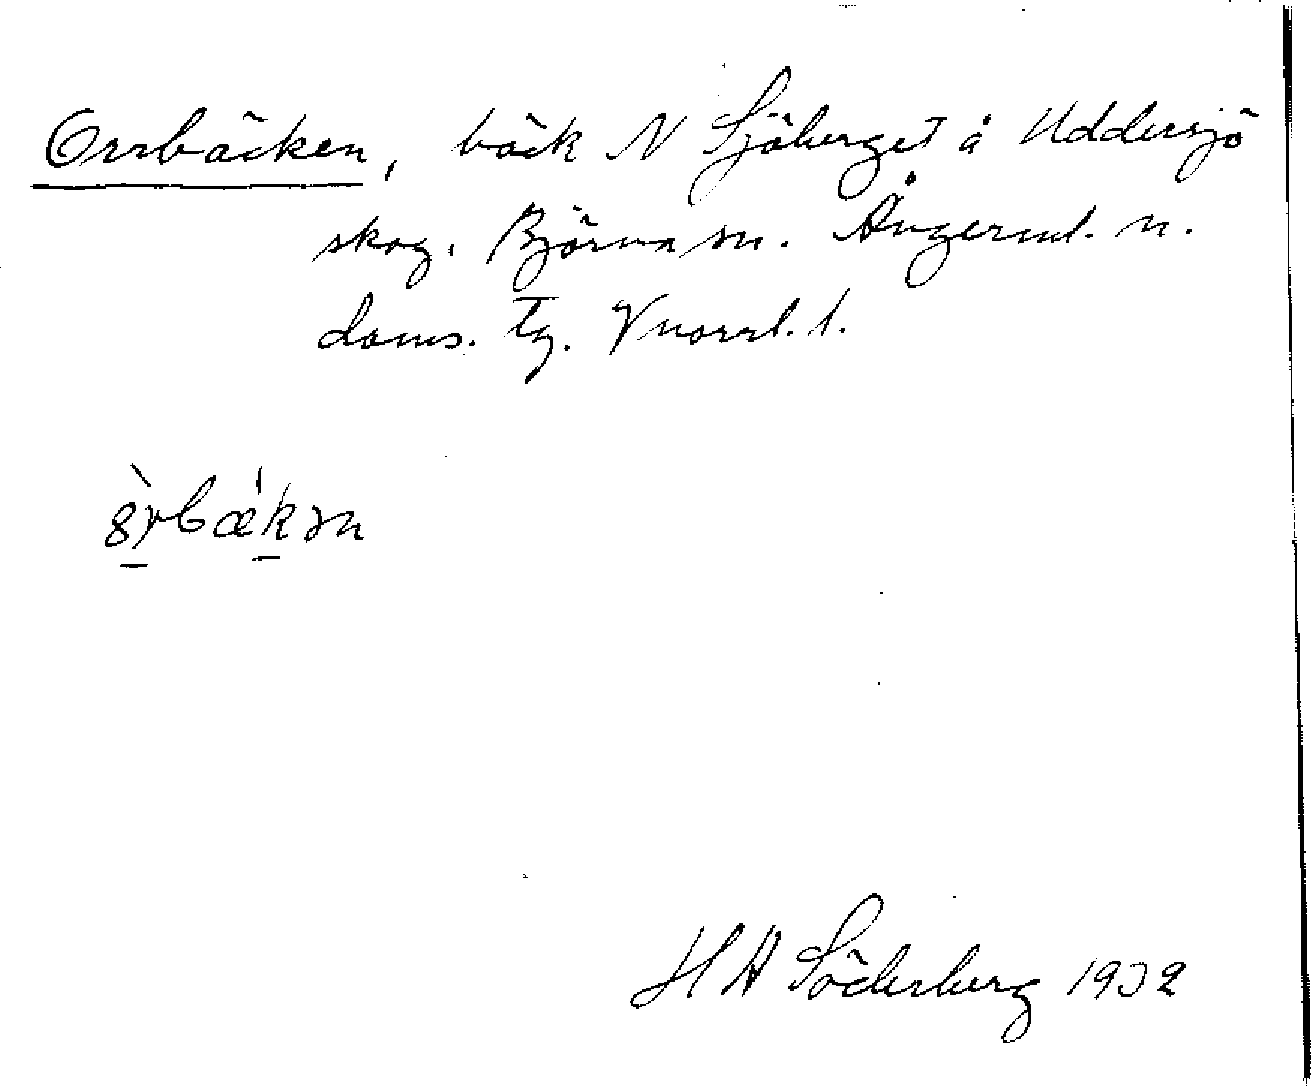 Orrbäcken, bäck N Sjöberget å Uddersjö
skog. Björna sn. Ångerml. n.
doms. tg. Vnorrl. l.
òrbǽkən
H A Söderberg 1932